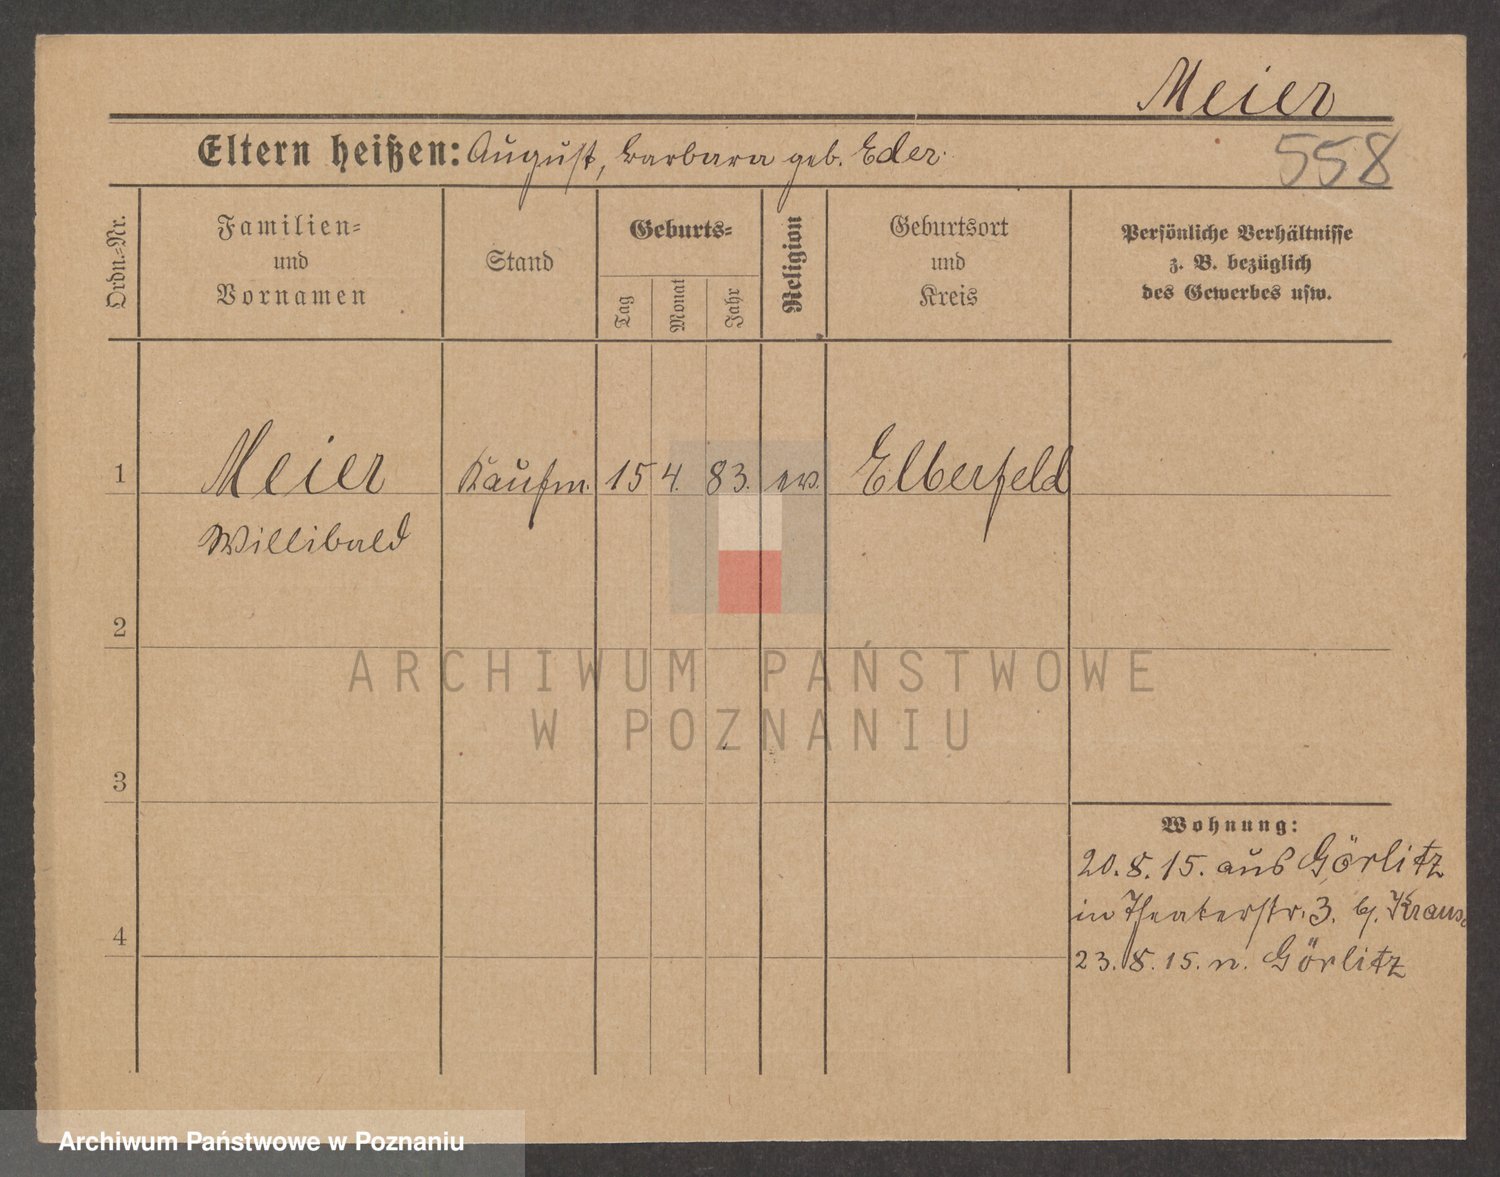 Meier
558
Eltern heißen: August, Barbara geb. Eder.
Ordn.-Nr.
Familien-
und
Vornamen
Stand
Geburts-
Tag
Monat
Jahr
Religion
Geburtsort
und
Kreis
Persönliche Verhältnisse
z. B. bezüglich
des Gewerbes usw.
1 Meier Kaufm. 15 4. 83. ev. Elberfeld
Willibald
2
3
4
Wohnung:
20. 8. 15. aus Görlitz
in Theaterstr. 3. b/. Krause
23. 8. 15. n. Görlitz
ARCHIWUM PAŃSTWOWE
W POZNANIU
Archiwum Państwowe w Poznaniu